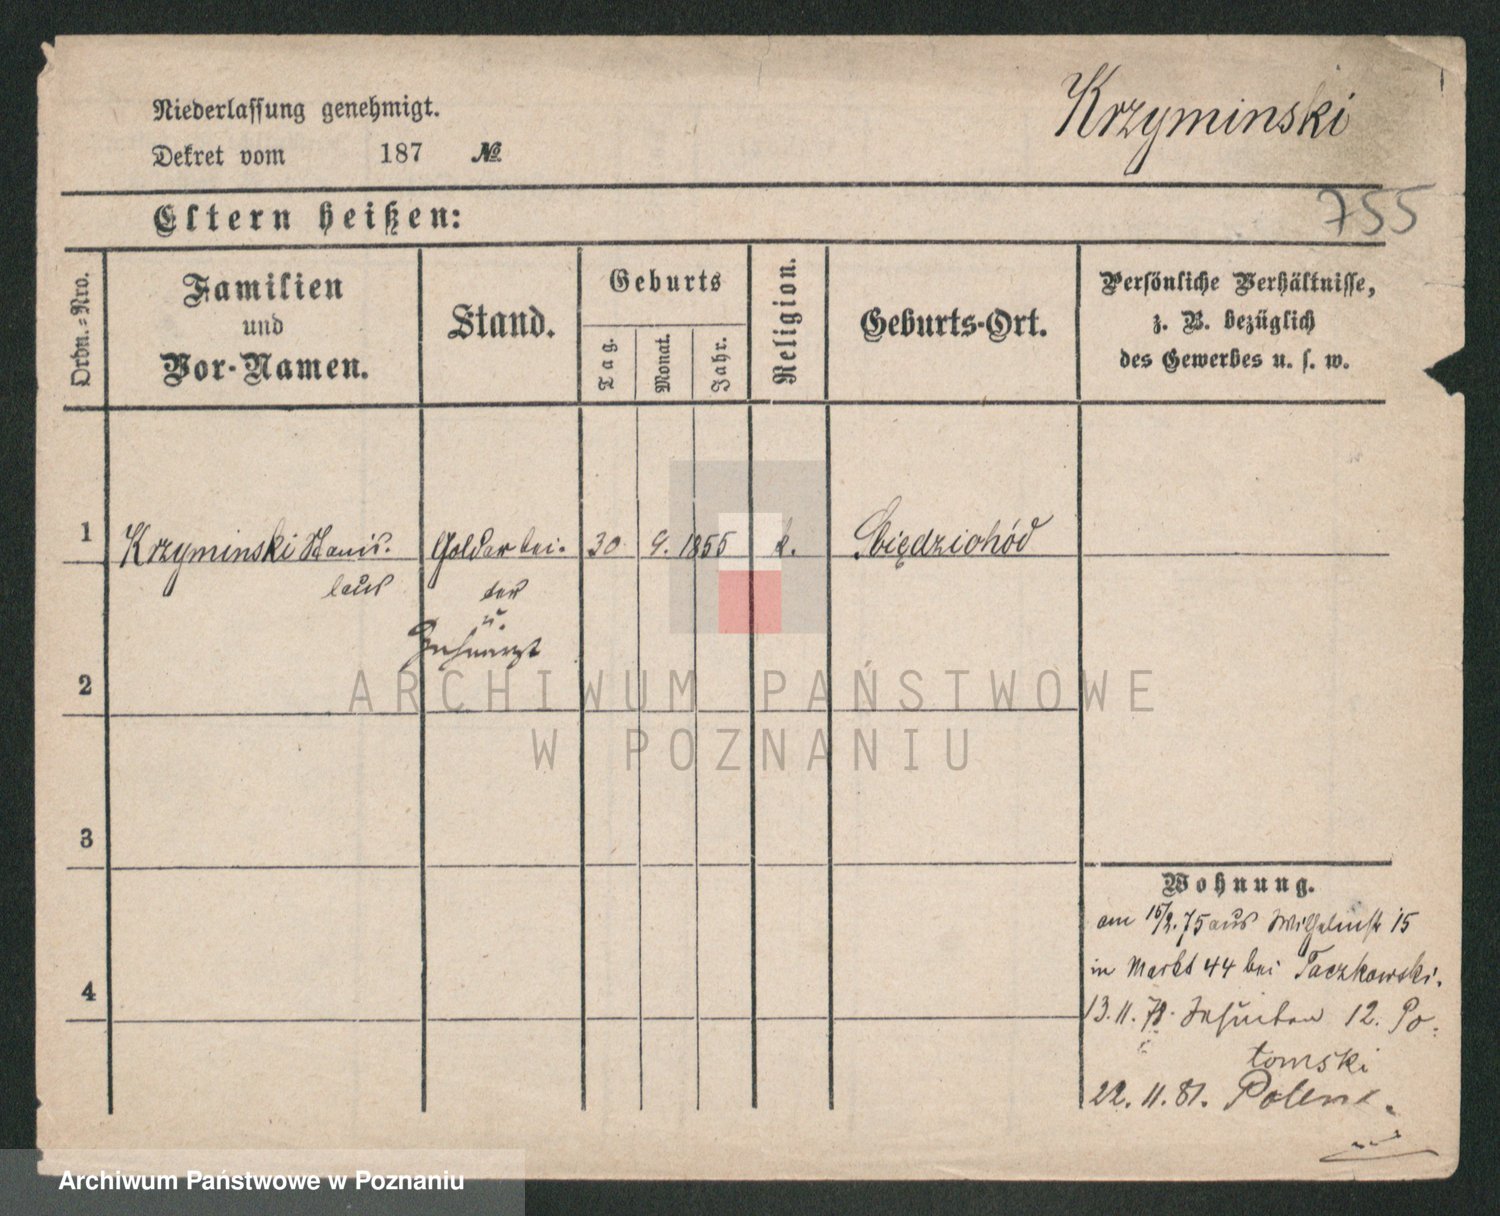 Niederlassung genehmigt.
Krzyminski
Dekret vom 187 №
755
Eltern heißen:
Ordn.-Nro.
Familien
und
Vor-Namen.
Stand.
Geburts
Tag.
Monat.
Jahr.
Religion.
Geburts-Ort.
Persönliche Verhältnisse,
z. B. bezüglich
des Gewerbes u. s. w.
1 Krzyminski Stanis- Goldarbei- 30 9. 1855 k.
laus ter
u.
Zahnarzt
2
ARCHIWUM PAŃSTWOWE
W POZNANIU
3
Wohnung.
am 15/2. 75 aus Wilhelmstr 15
4
in Markt 44 bei Taczkowski.
13. 11. 78. 12. Po-
tomski
22. 11. 81. Polen
Archiwum Państwowe w Poznaniu